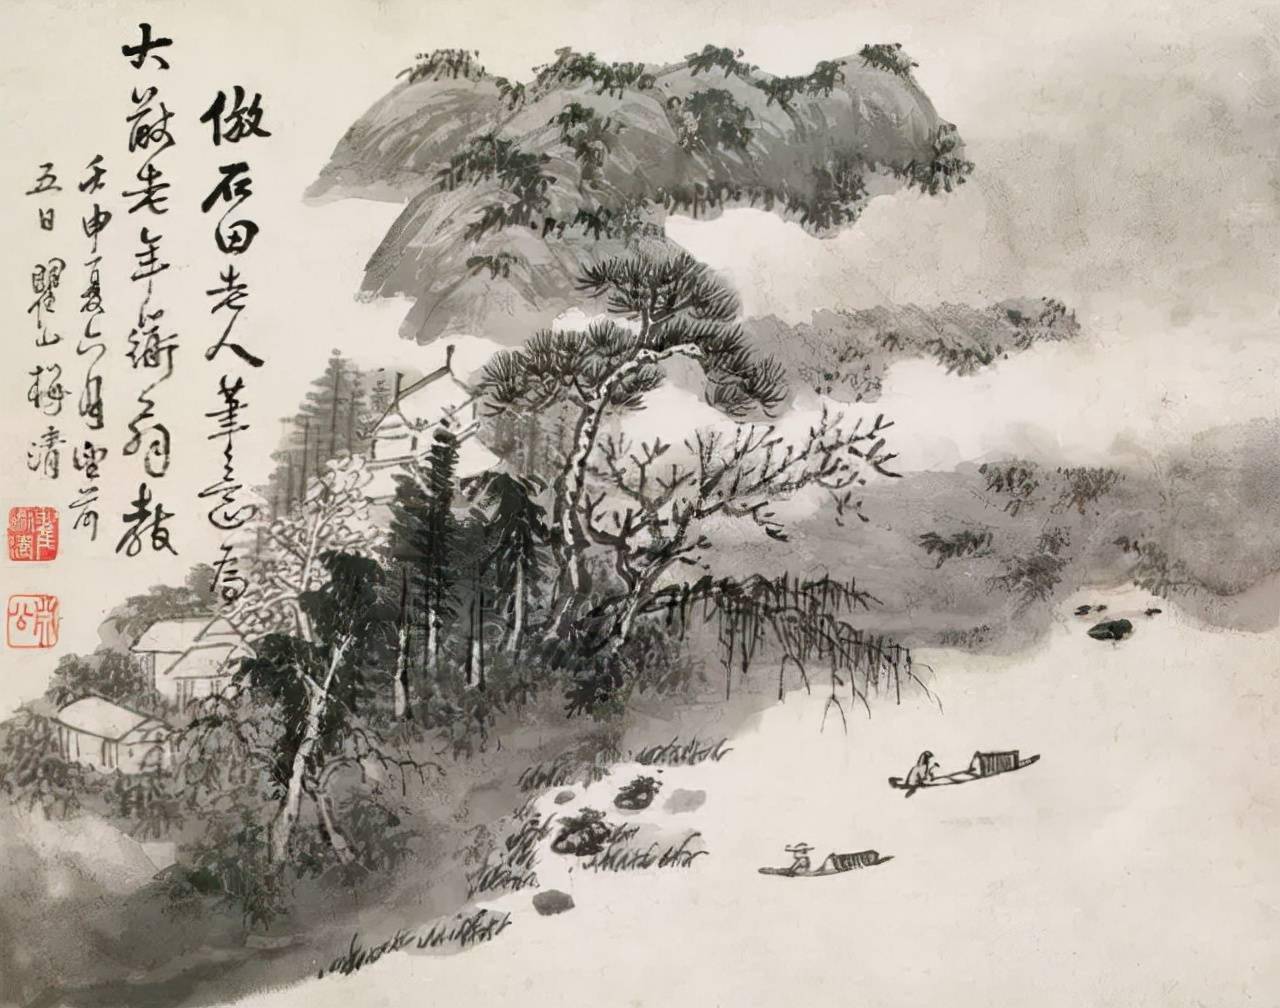 倣石田老人筆意為
大老年翁教
壬申夏六月望前
五日瞿山梅清